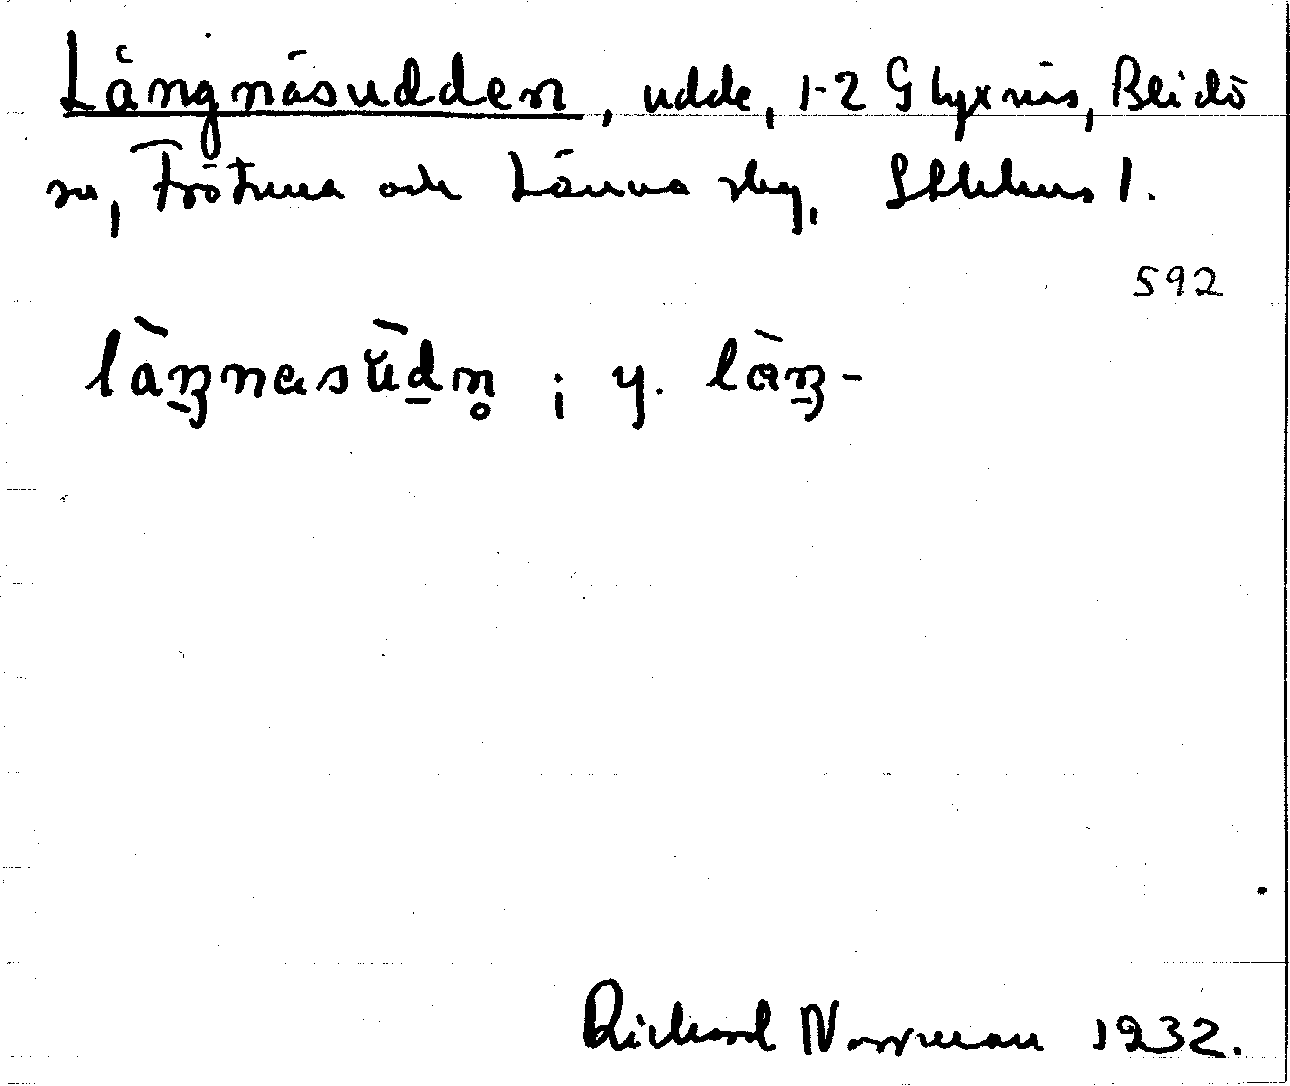 Långnäsudden, udde, 1-2 Glyxnäs, Blidö
sn, Frötuna och Länna skg, Sthlms l.
592
làŋnasùdn̥ ; y. làŋ-
Richard Norrman 1932.